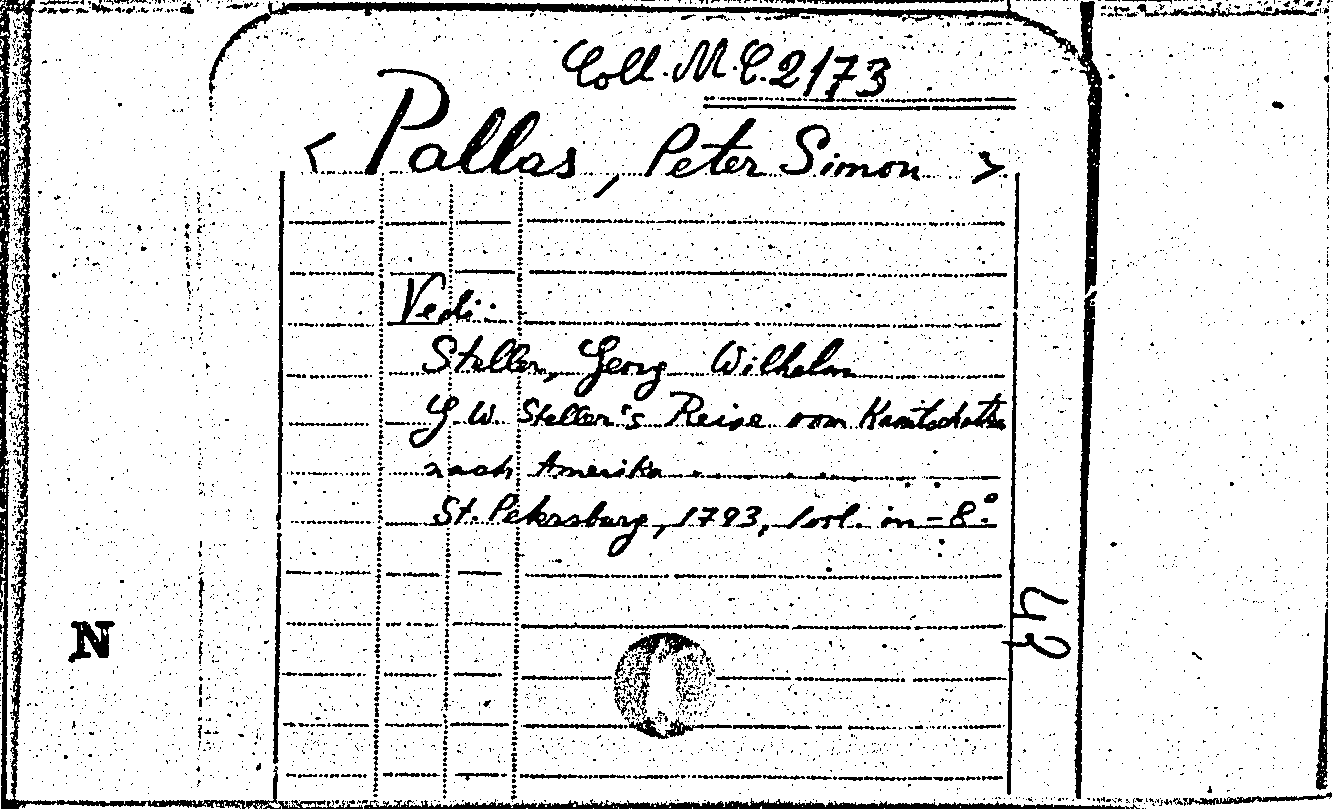 Coll. M.C. 2173
< Pallas, Peter Simon >
Vedi:
Steller, Georg Wilhelm
G. W. Steller's Reise vom Kamtschatka
nach Amerika . . . . . .
St. Petersburg, 1793, 1 vol. in-8°.
43
N